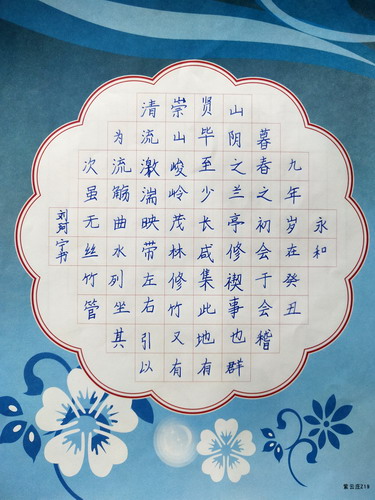 永和
九年岁在癸丑
暮春之初会于会稽
山阴之兰亭修禊事也群
贤毕至少长咸集此地有
崇山峻岭茂林修竹又有
清流激湍映带左右引以
为流觞曲水列坐其
次虽无丝竹管